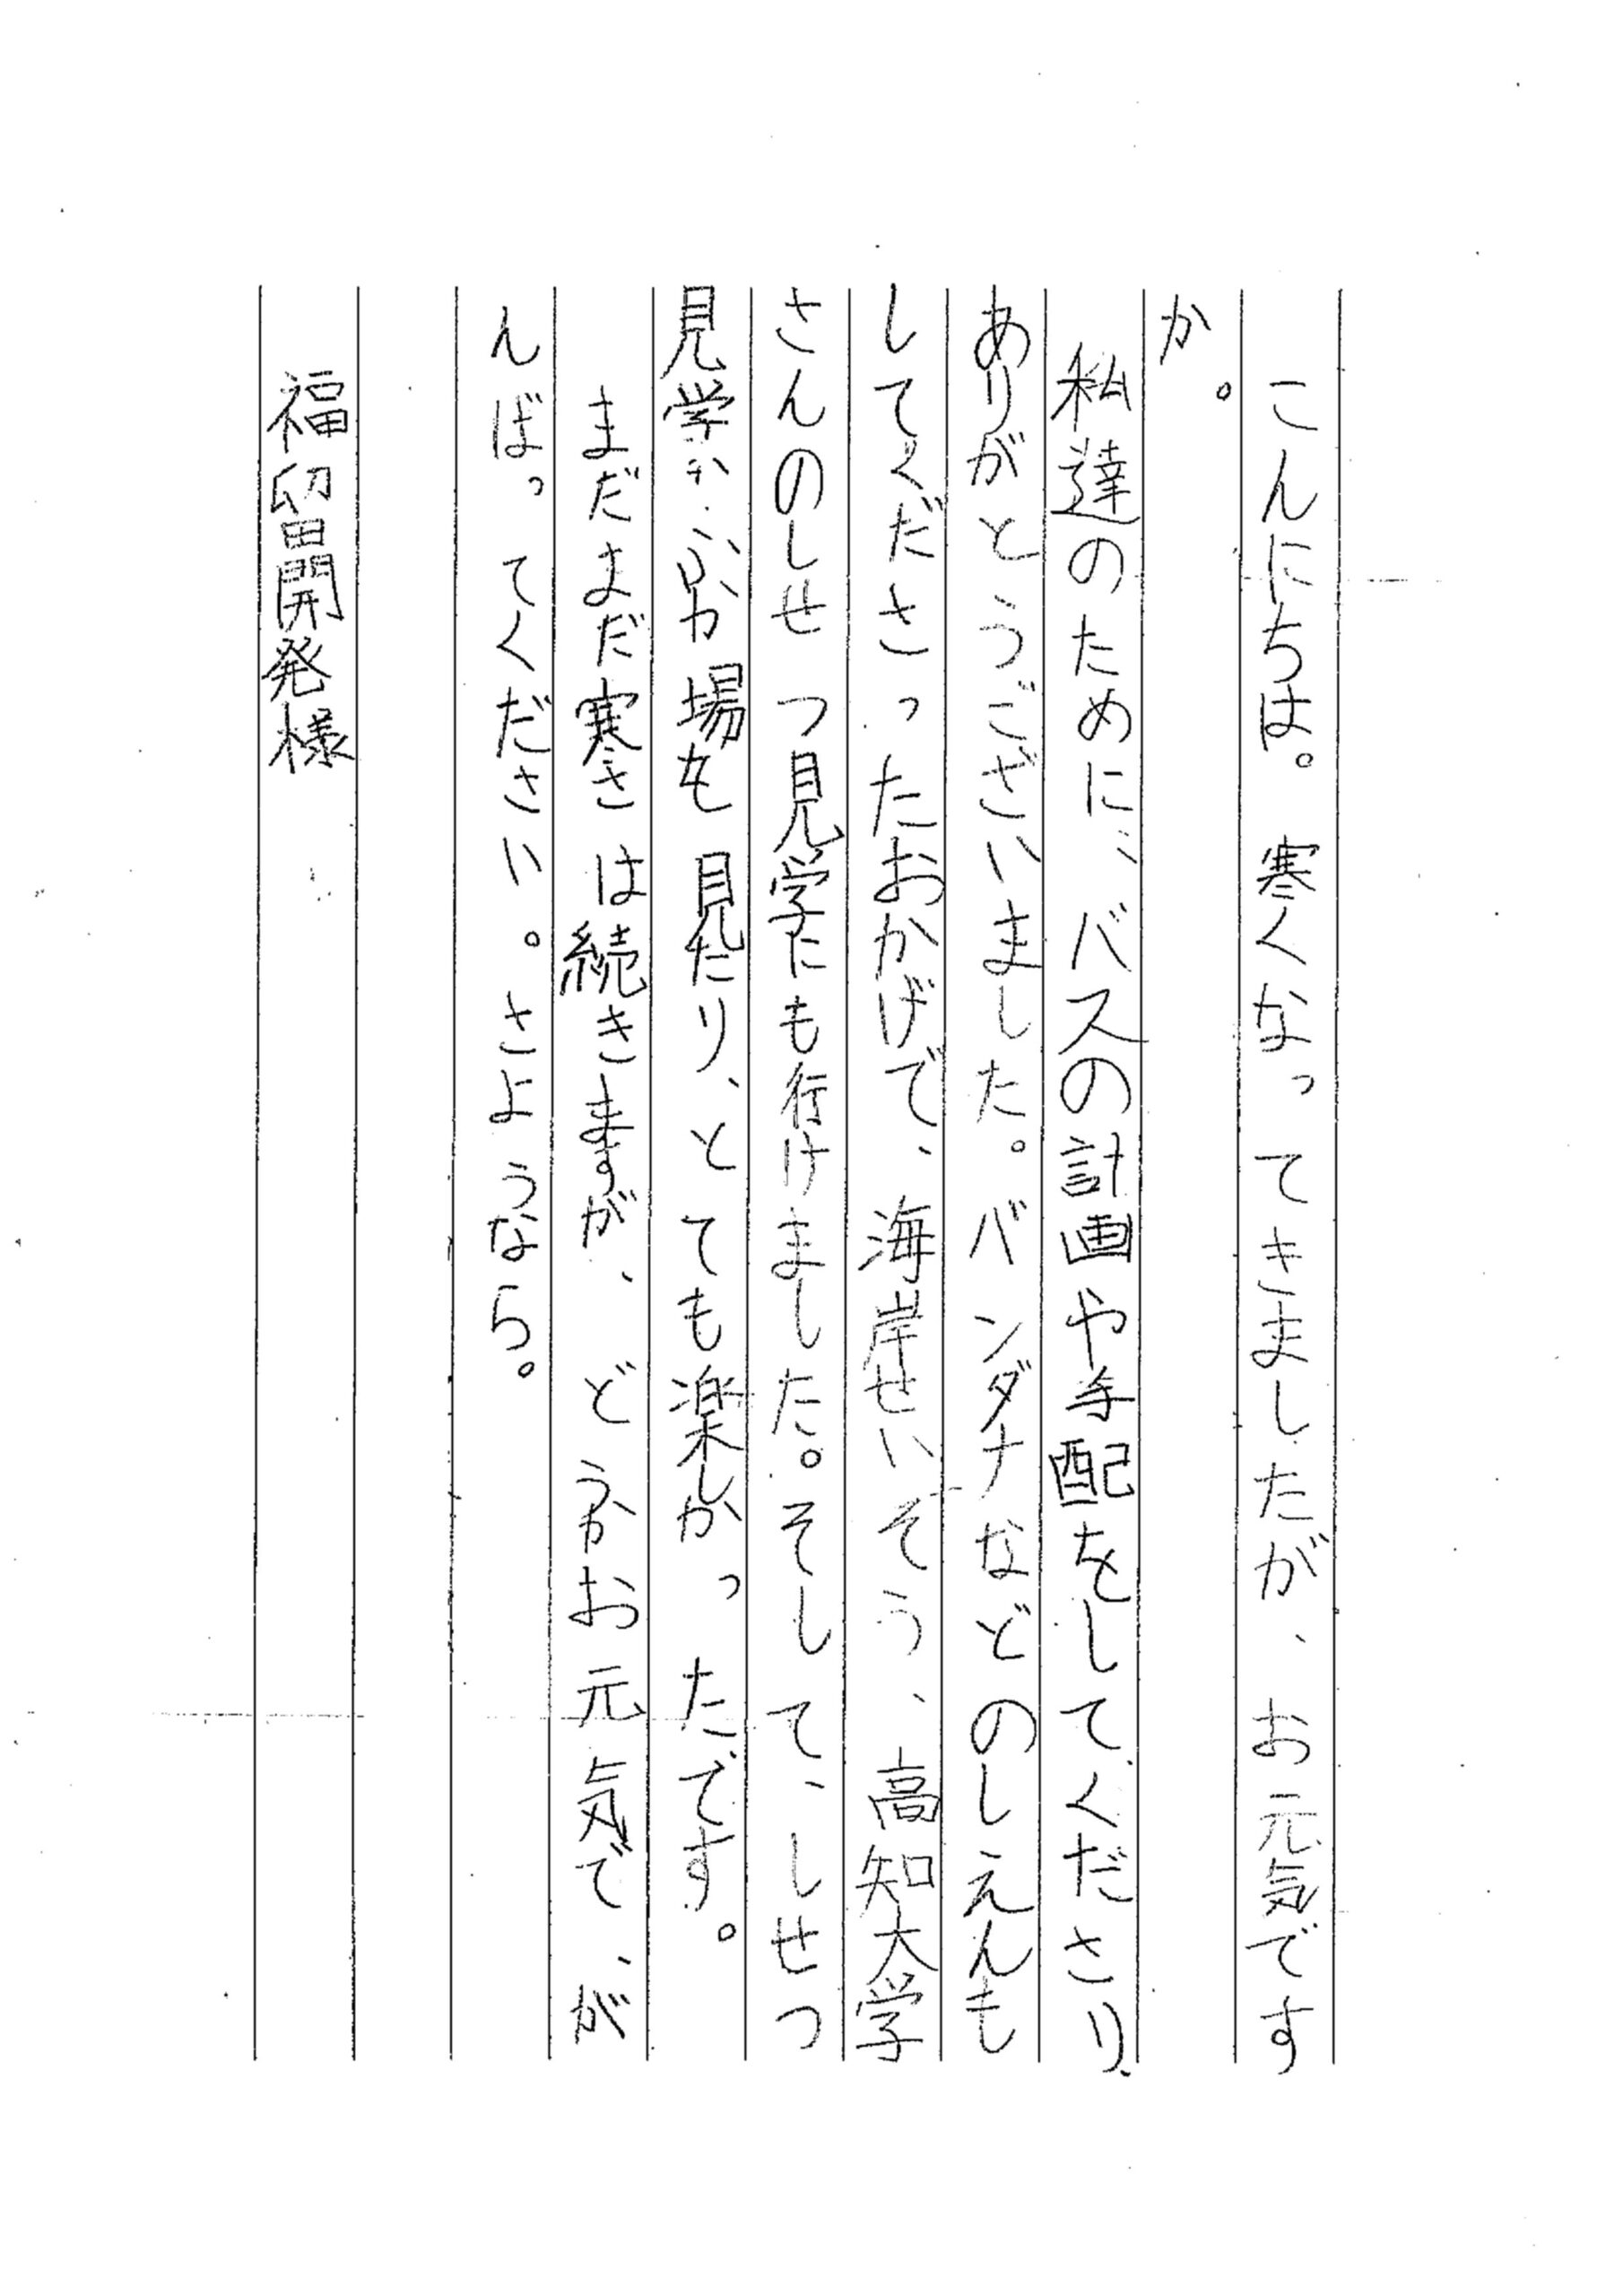 こんにちは。寒くなってきましたが、お元気です
か。
私達のために、バスの計画や手配をしてくださり、
ありがとうございました。バンダナなどのしえんも
してくださったおかげで、海岸せいそう、高知大学
さんのしせつ見学にも行けました。そして、しせつ
見学いがいか場も見たり、とても楽しかったです。
まだまだ寒さは続きますが、どうかお元気で、が
んばってください。さようなら。
福留開発様